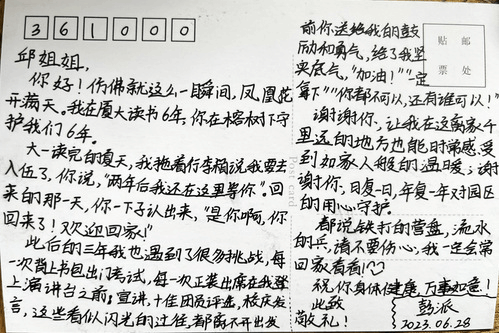 361000
邱姐姐,
你好!仿佛就这么一瞬间,凤凰花
开满天。我在厦大读书6年,你在榕树下守
护我们6年。
大一读完的夏天,我拖着行李箱说我要去
入伍了,你说,"两年后我还在这里等你"。回
来的那一天,你一下子认出来,"是你啊,你
回来了!欢迎回家!"
此后的三年我也遇到了很多挑战,每
一次背上书包出门考试,每一次正装出席在我登
上演讲台之前:宣讲,十佳团员评选,校庆发
言,这些看似闪光的过往,都离不开出发
前你送给我的鼓
励和勇气,给了我坚
实底气,"加油!""一定
拿下""你都不可以,还有谁可以!"
谢谢你,让我在这离家千
里远的地方也能时常感受
到如家人般的温暖;谢
谢你,日复一日,年复一年对园区
的用心守护。
都说铁打的营盘,流水
的兵,请不要伤心,我一定会常
回家看看♡
祝你身体健康,万事如意!
此致
敬礼!
彭派
2023.06.28
贴 邮
票 处
Post card